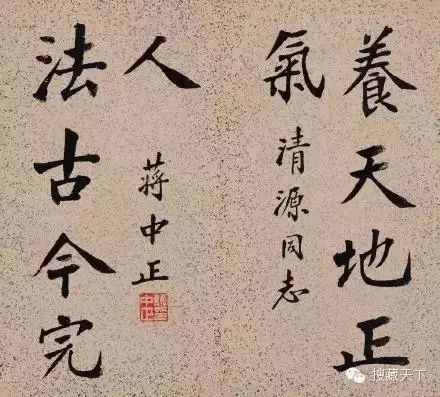 養天地正
氣
清源同志
法古今完
人
蔣中正
搜藏天下